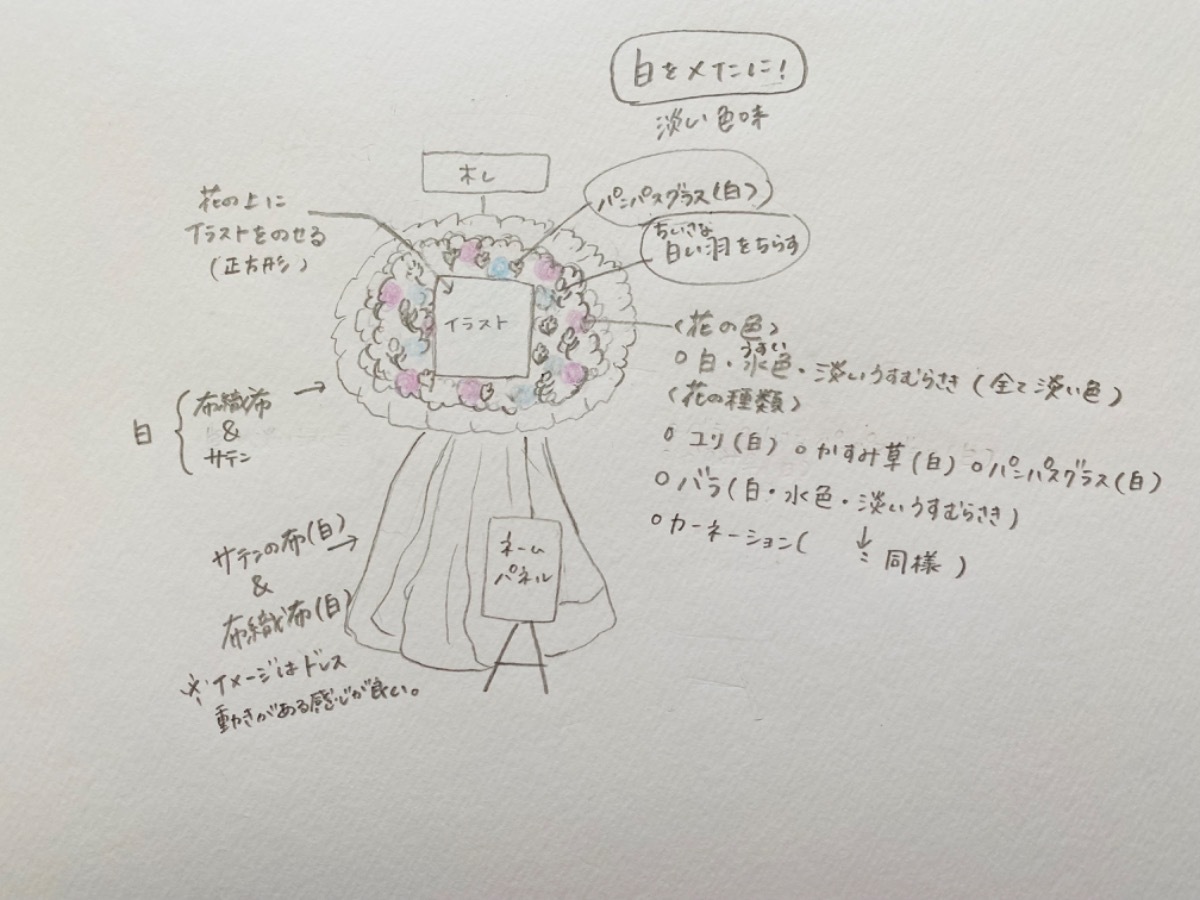 白をメインに!
淡い色味
木し
パンパスグラス(白)
ちいさな
白い羽をちらす
花の上に
イラストをのせる
(正方形)
イラスト
<花の色>
うすい
○白・水色・淡いうすむらさき(全て淡い色)
<花の種類>
○ユリ(白) ○かすみ草(白) ○パンパスグラス(白)
○バラ(白・水色・淡いうすむらさき)
○カーネーション( ↓ :: 同様)
白 { 布織布
&
サテン
サテンの布(白)
&
布織布(白)
※イメージはドレス
動きがある感じが良い。
ネーム
パネル